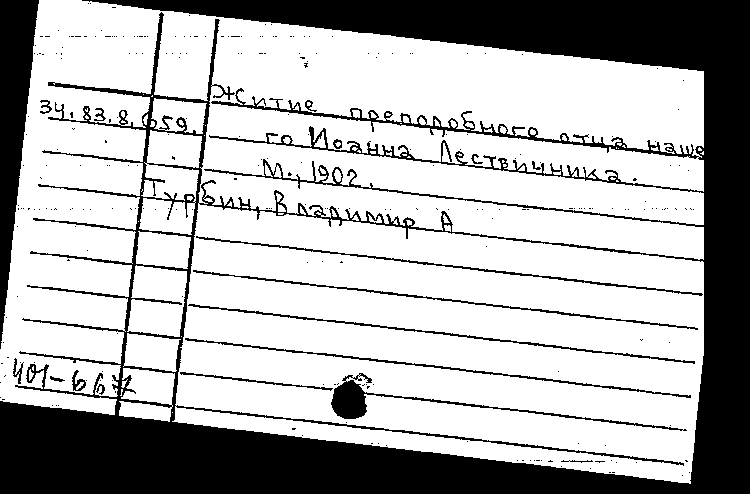 Житие преподобного отца наше
34.83.8.659.
го Иоанна Лествичника.
М., 1902.
Турбин, Владимир А
401-667